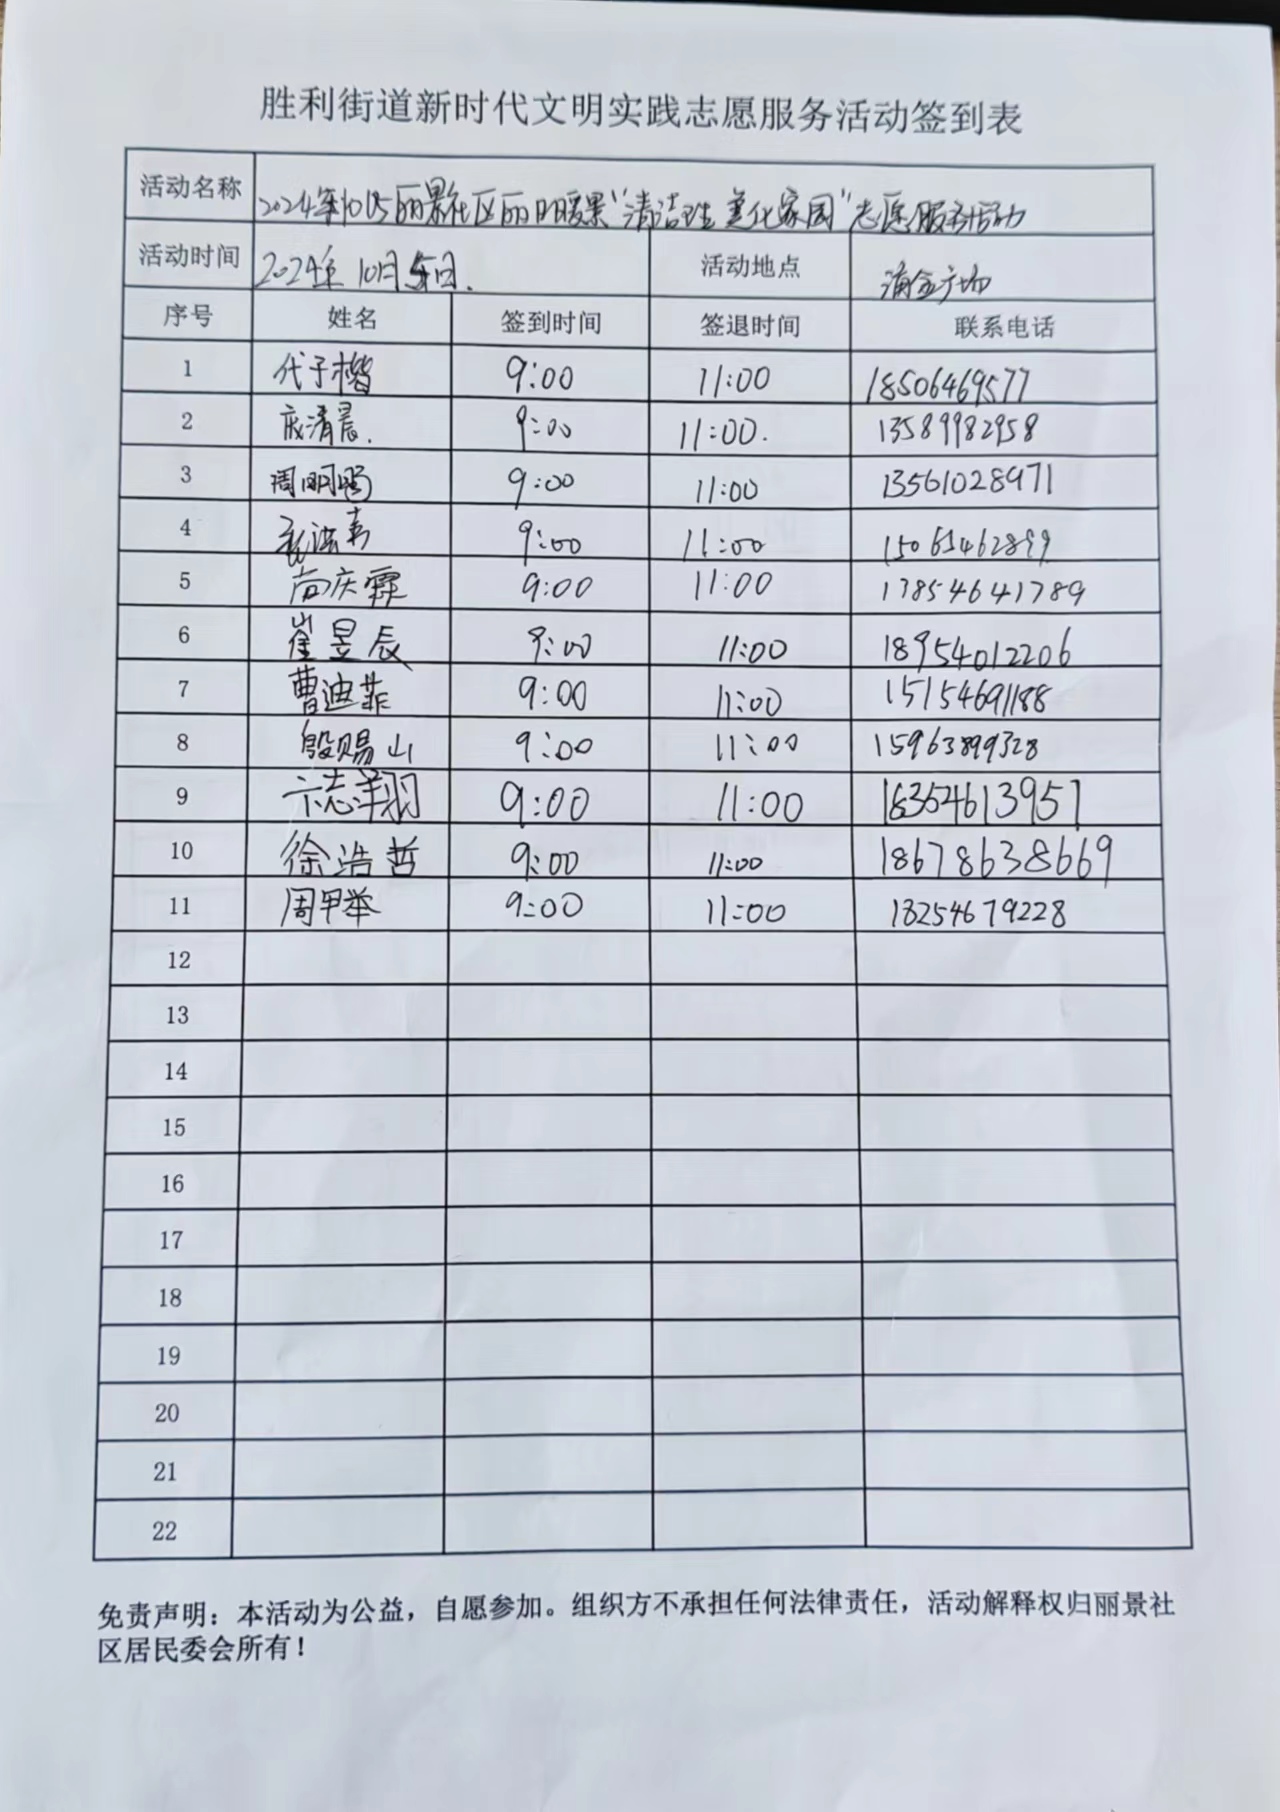 胜利街道新时代文明实践志愿服务活动签到表
活动名称 2024年10月5丽景社区丽日暖景"清洁卫生 美化家园"志愿服务活动
活动时间 2024年10月5日. 活动地点 浦金广场
序号 姓名 签到时间 签退时间 联系电话
1 代子楷 9:00 11:00 18506469577
2 庞清晨. 9:00 11:00. 13589982958
3 周明 9:00 11:00 13561028971
4 9:00 11:00 15065462899
5 尚庆霖 9:00 11:00 17854641789
6 崔昱辰 9:00 11:00 18954012206
7 曹迪菲 9:00 11:00 15154691188
8 殷赐山 9:00 11:00 15963899328
9 志翔 9:00 11:00 18354613957
10 徐浩哲 9:00 11:00 18678638669
11 周甲举 9:00 11:00 18254679228
12
13
14
15
16
17
18
19
20
21
22
免责声明：本活动为公益，自愿参加。组织方不承担任何法律责任，活动解释权归丽景社
区居民委会所有！